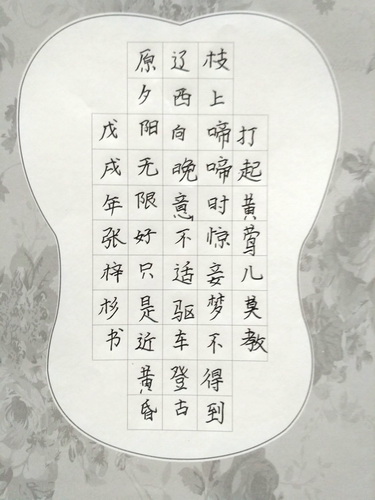 打起黄莺儿莫教
枝上啼啼时惊妾梦不得到
辽西向晚意不适驱车登古
原夕阳无限好只是近黄昏
戊戌年张梓杉书